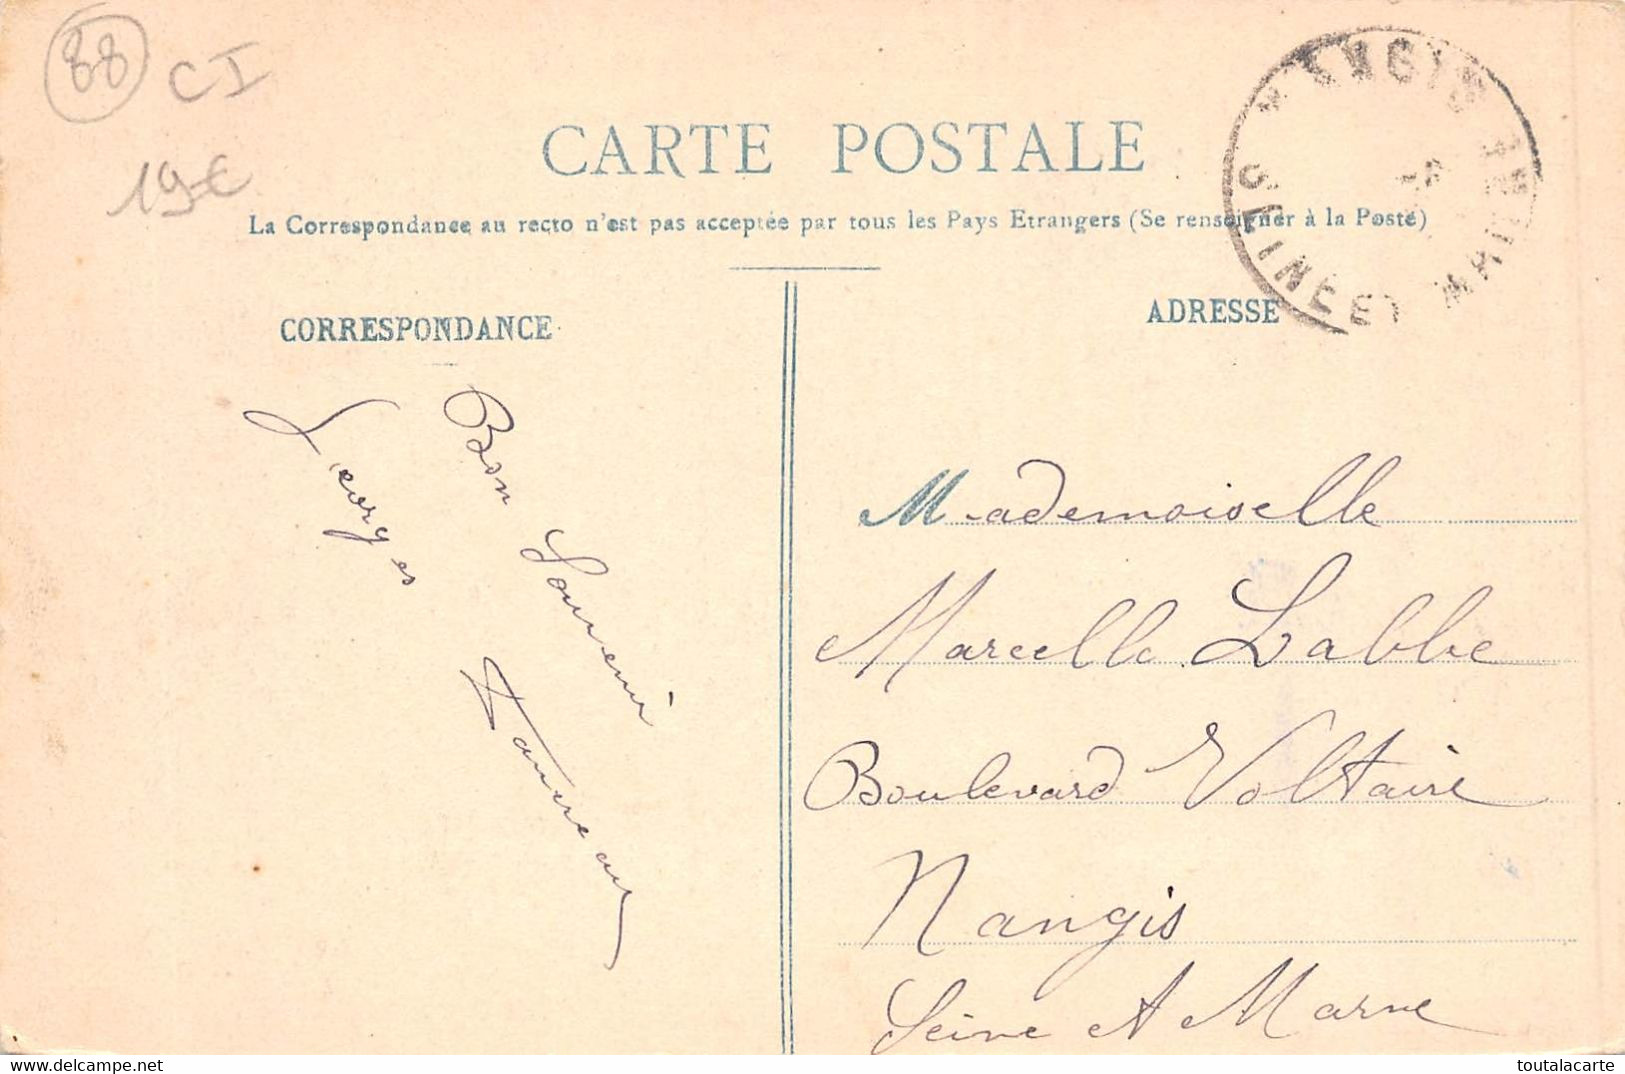 88
CI
19€
CARTE POSTALE
La Correspondance au recto n'est pas acceptée par tous les Pays Etrangers (Se renseigner à la Poste)
NANGIS
SEINE ET MARNE
CORRESPONDANCE
Bon Souvenir
Georges
ADRESSE
Mademoiselle
Marcelle Labbe
Boulevard Voltaire
Nangis
Seine et Marne
www.delcampe.net
toutalacarte